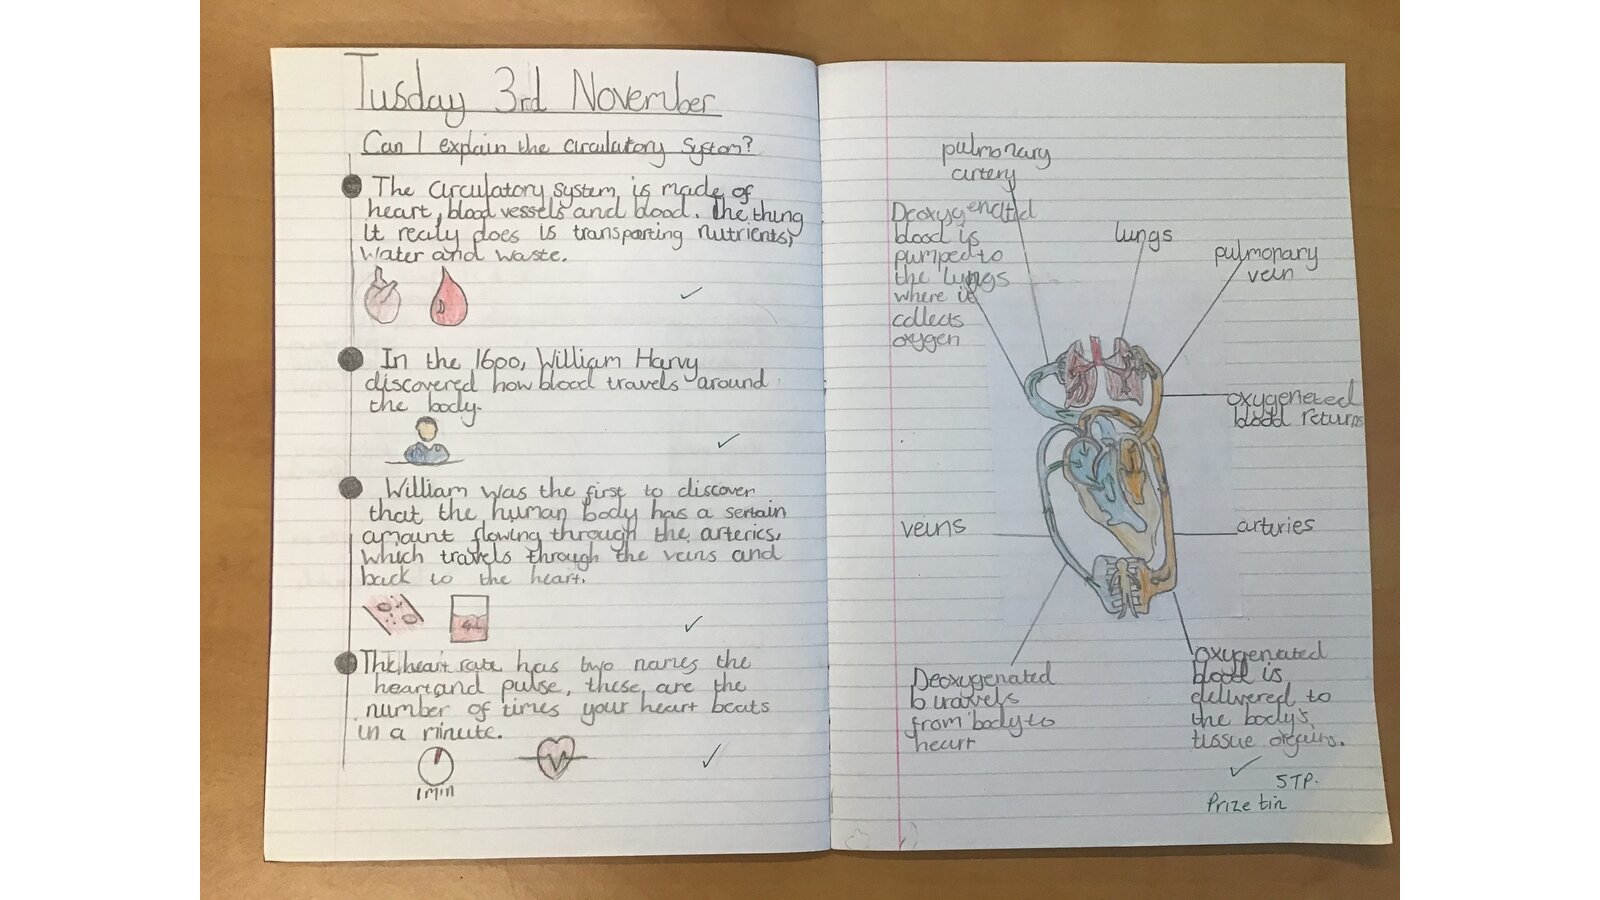 Tusday 3rd November
Can I explain the circulatory system?
The circulatory system is made of
heart, blood vessels and blood. The thing
it realy does is transporting nutrients,
water and waste.
In the 1600, William Harvy
discovered how blood travels around
the body.
William was the first to discover
that the human body has a sertain
amount flowing through the arteries,
which travels through the veins and
back to the heart.
4L
The heart rate has two names the
heart and pulse, these are the
number of times your heart beats
in a minute.
1 min
pulmonary
artery
Deoxygenated
blood is
pumped to
the lungs
where it
collects
oxygen
lungs
pulmonary
vein
oxygeneted
blood returns
veins
arteries
Deoxygenated
b travels
from body to
heart
Oxygenated
blood is
delivered to
the body's
tissue organs.
5TP.
Prize tin